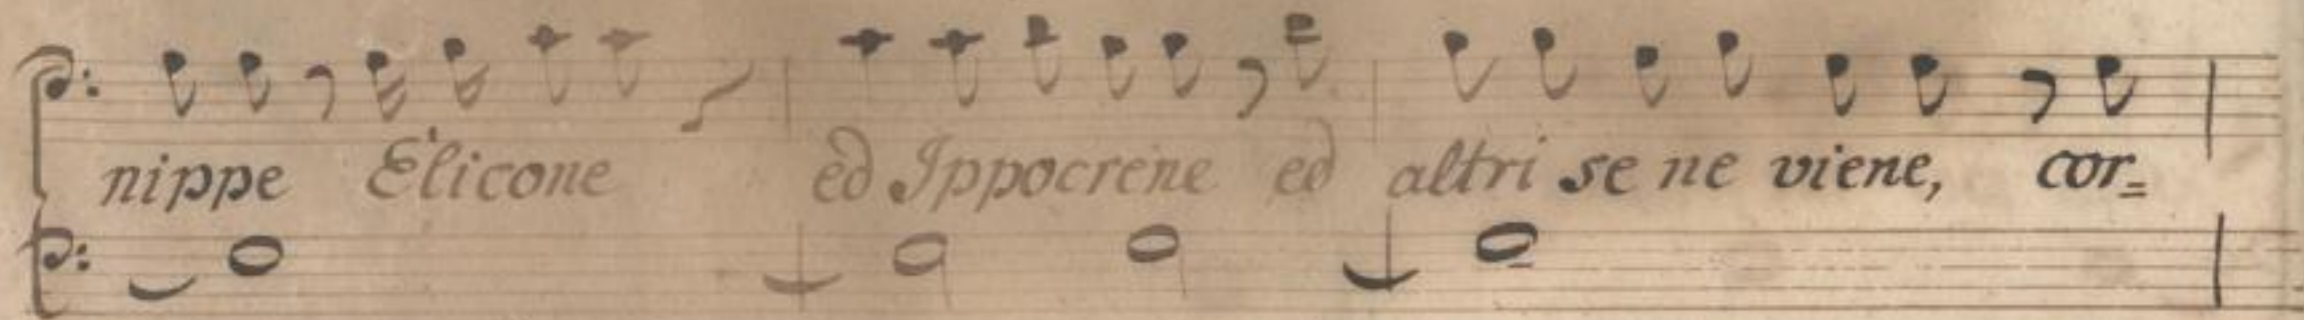 nippe Elicone ed Ippocrene ed altri se ne viene, cor=